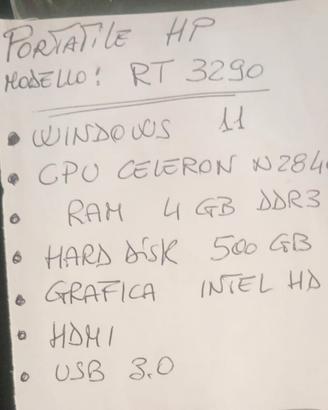 PORTATILE HP
MODELLO: RT 3290
• WINDOWS 11
• CPU CELERON N2840
• RAM 4 GB DDR3
• HARD DISK 500 GB
• GRAFICA INTEL HD
• HDMI
• USB 3.0